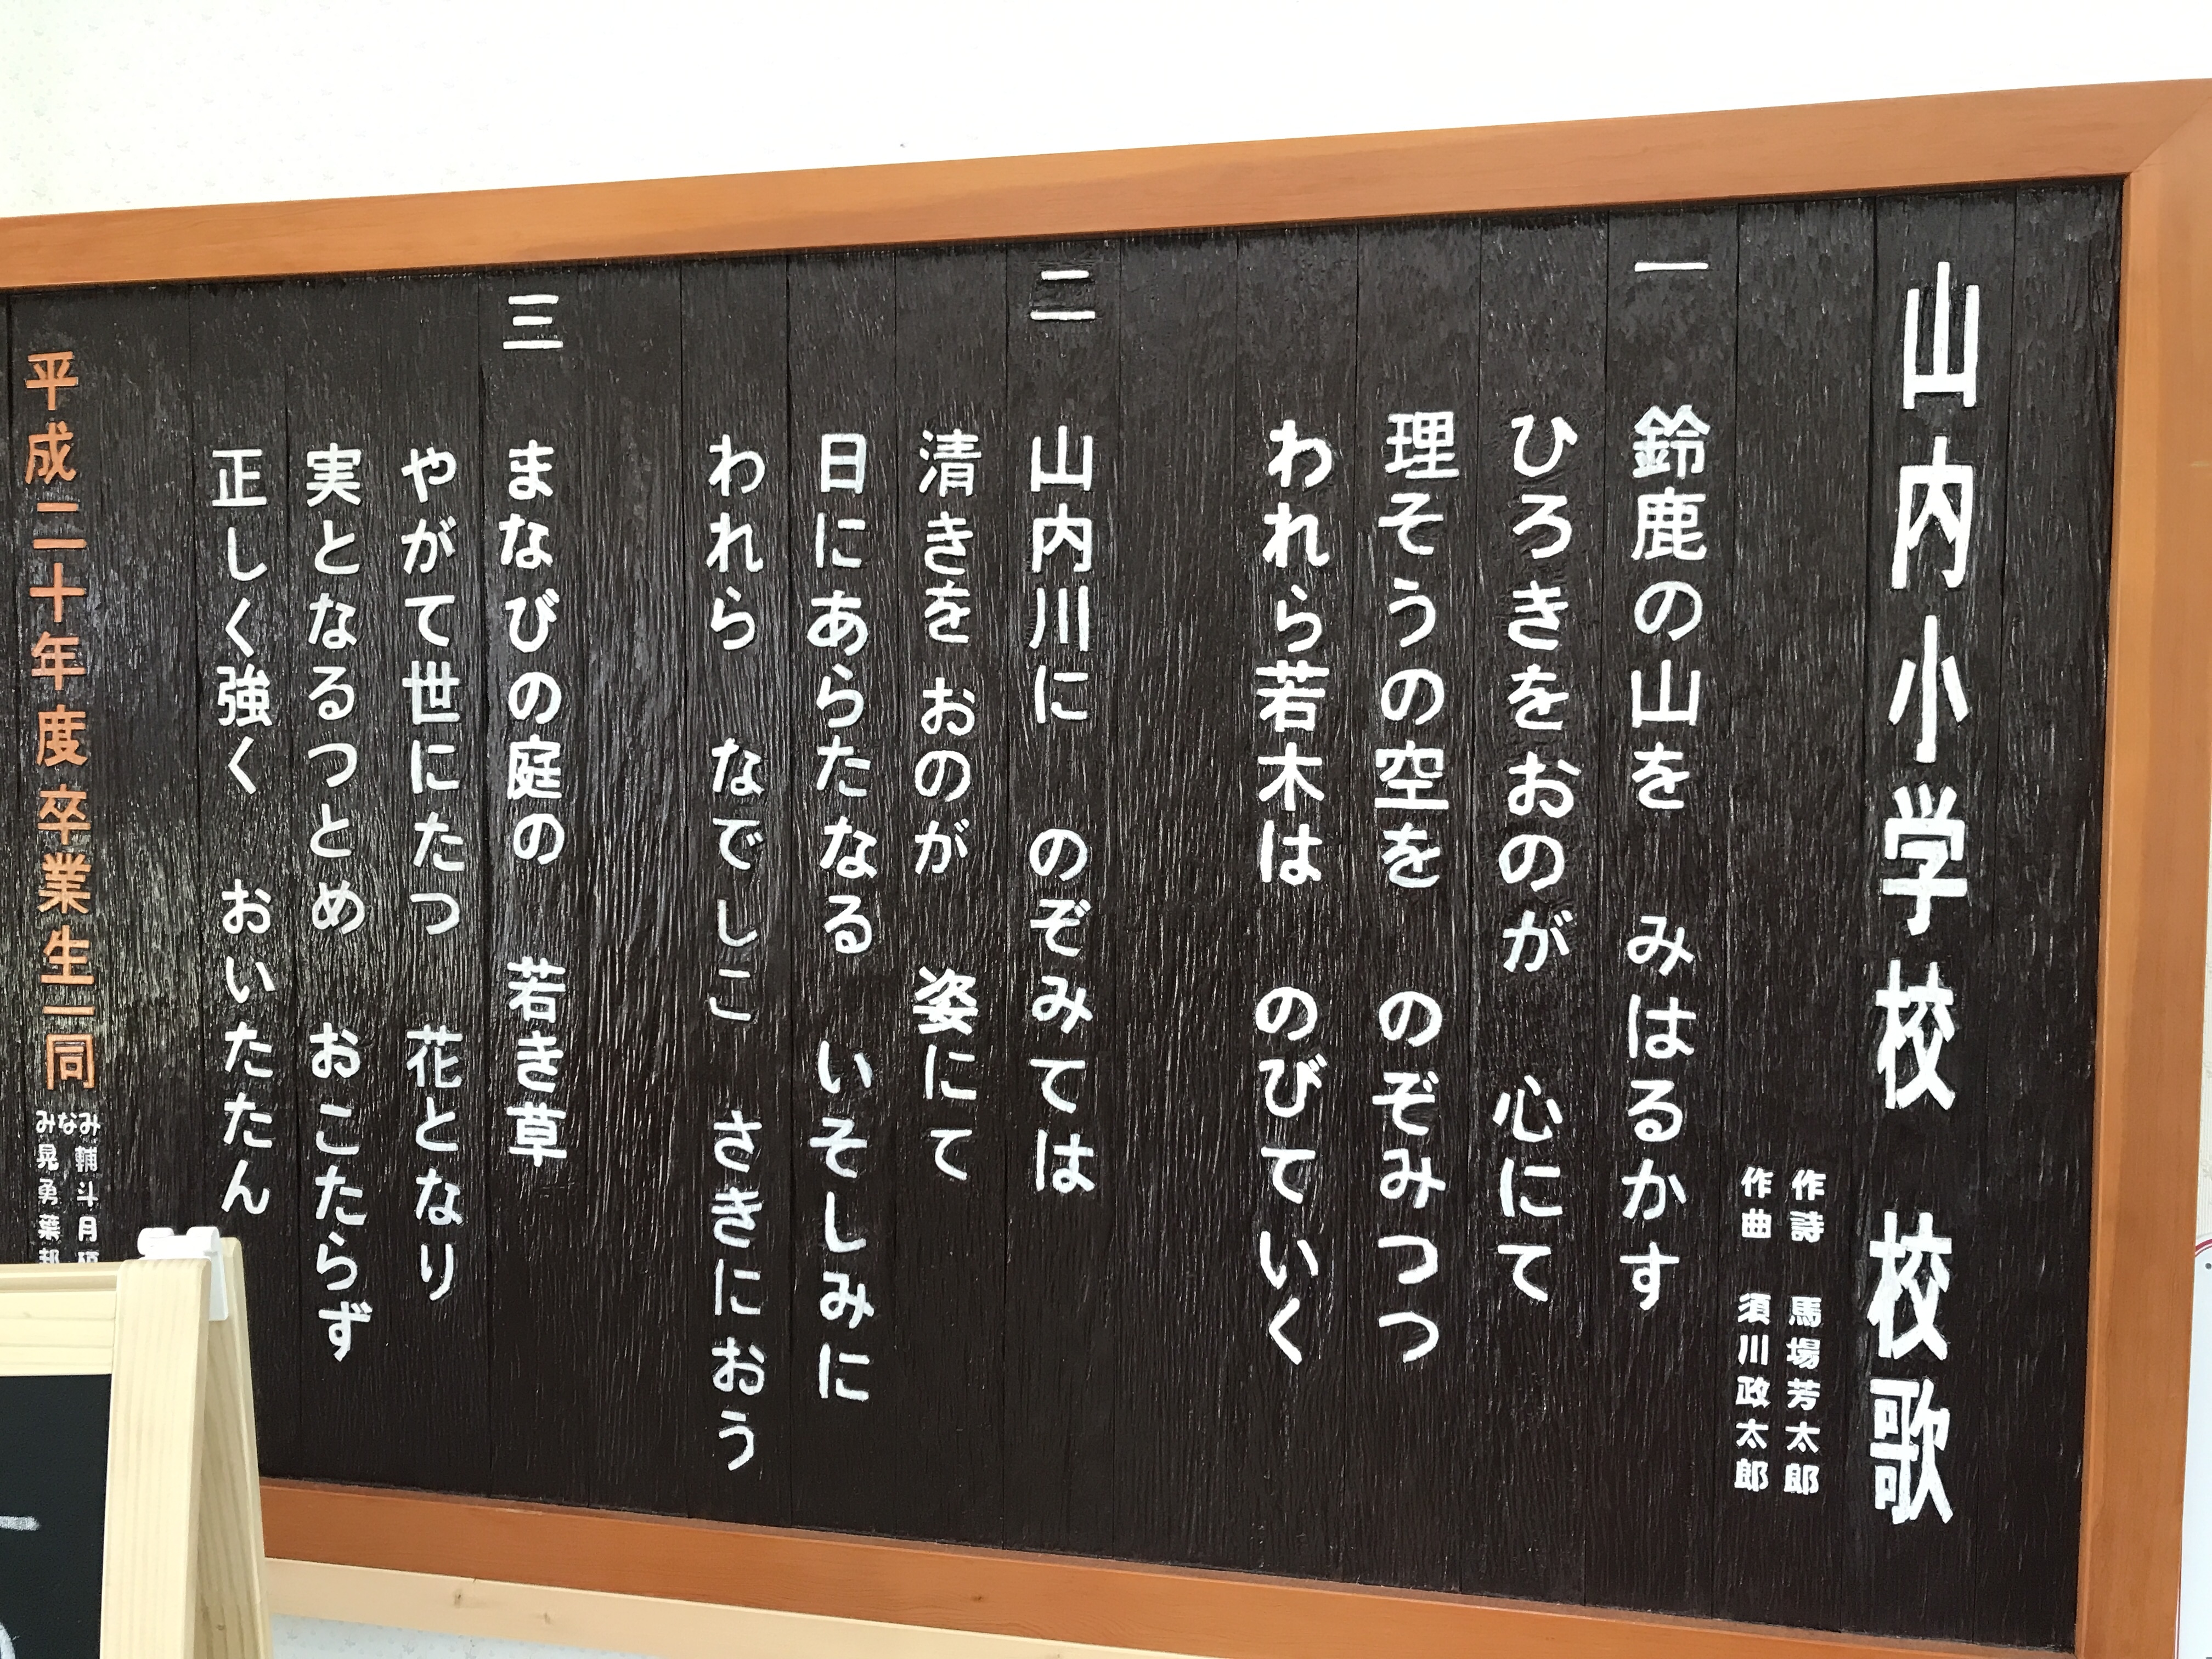 山内小学校 校歌
作詩 馬場芳太郎
作曲 須川政太郎
一 鈴鹿の山を みはるかす
ひろきをおのが 心にて
理そうの空を のぞみつつ
われら若木は のびていく
二 山内川に のぞみては
清きを おのが 姿にて
日にあらたなる いそしみに
われら なでしこ さきにおう
三 まなびの庭の 若き草
やがて世にたつ 花となり
実となるつとめ おこたらず
正しく強く おいたたん
平成二十年度卒業生一同